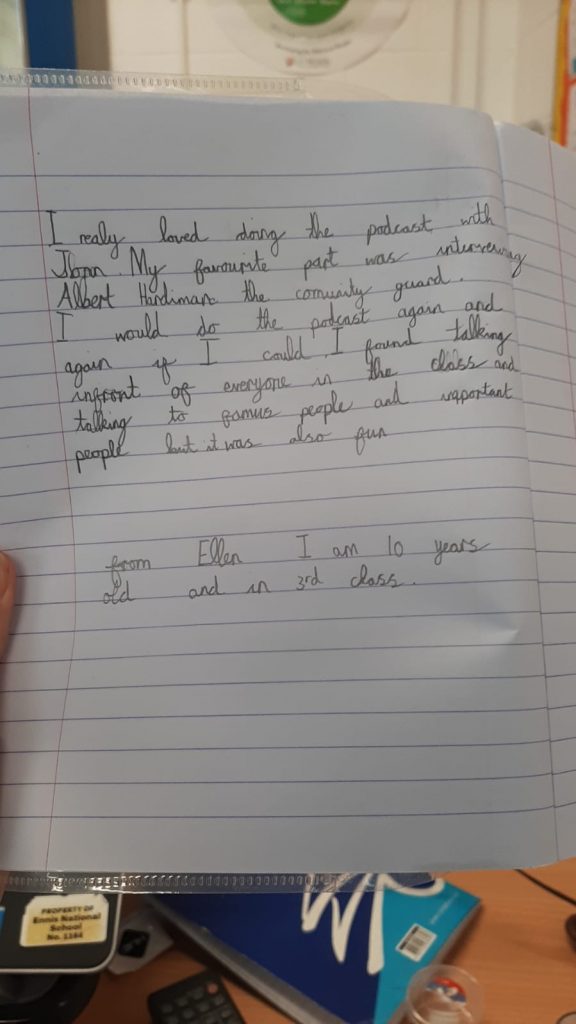 I realy loved doing the podcast with
My favourite part was
Albert Hardiman the comuity guard.
I would do the podcast again and
again if I could. I found talking
infront of everyone in the class and
talking to famus people and inpportant
people but it was also fun
from Ellen I am 10 years
old and in 3rd class.
PROPERTY OF
Ennis National
School
No. 1184